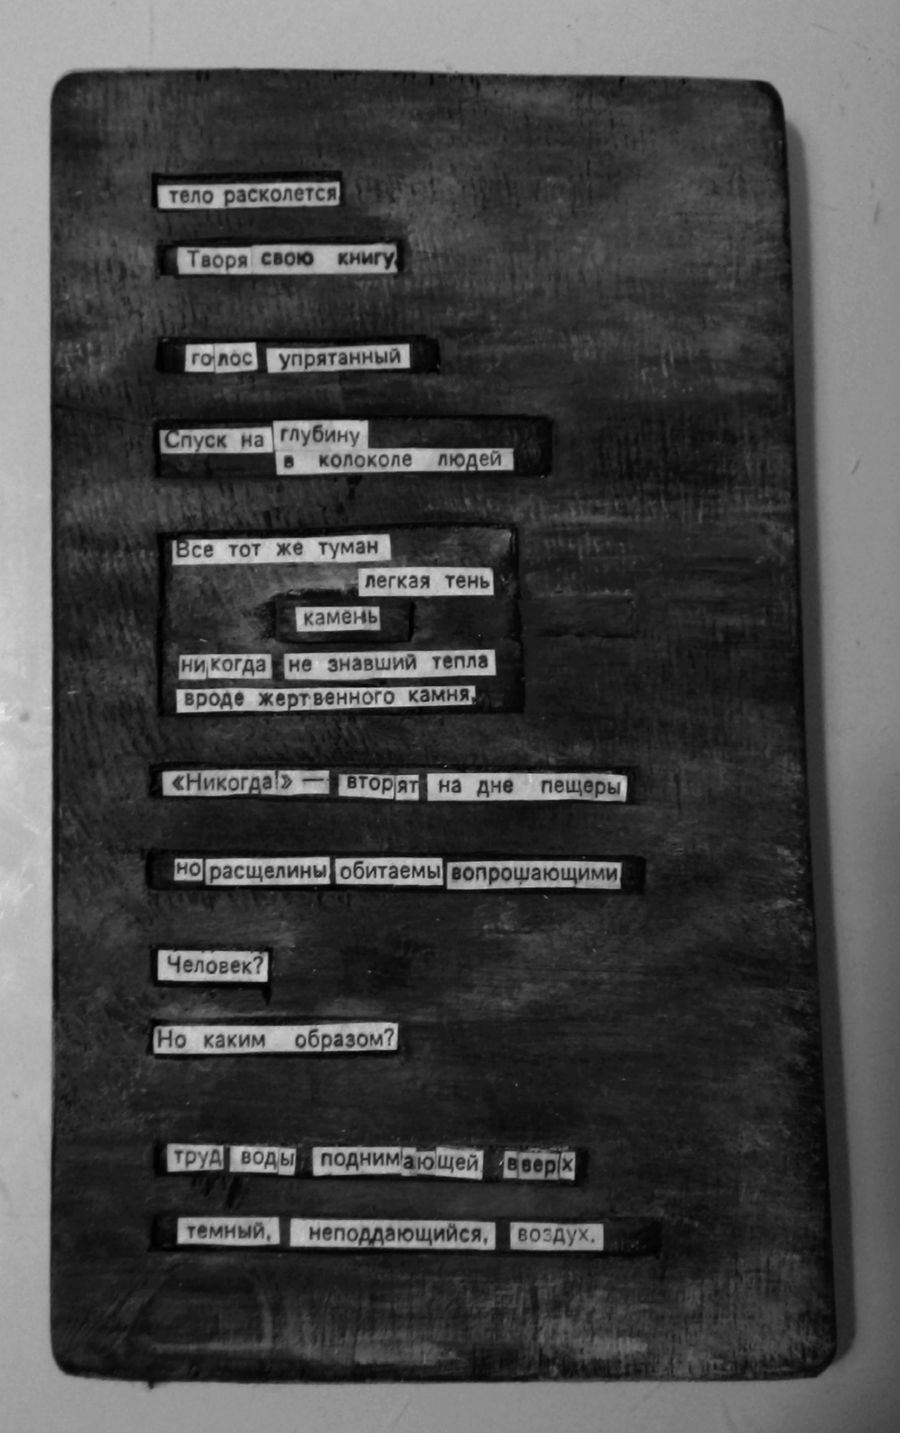 тело расколется
Творя свою книгу,
голос упрятанный
Спуск на глубину
в колоколе людей
Все тот же туман
легкая тень
камень
никогда не знавший тепла
вроде жертвенного камня,
«Никогда!» — вторят на дне пещеры
но расщелины обитаемы вопрошающими
Человек?
Но каким образом?
труд воды поднимающей вверх
темный, неподдающийся, воздух.